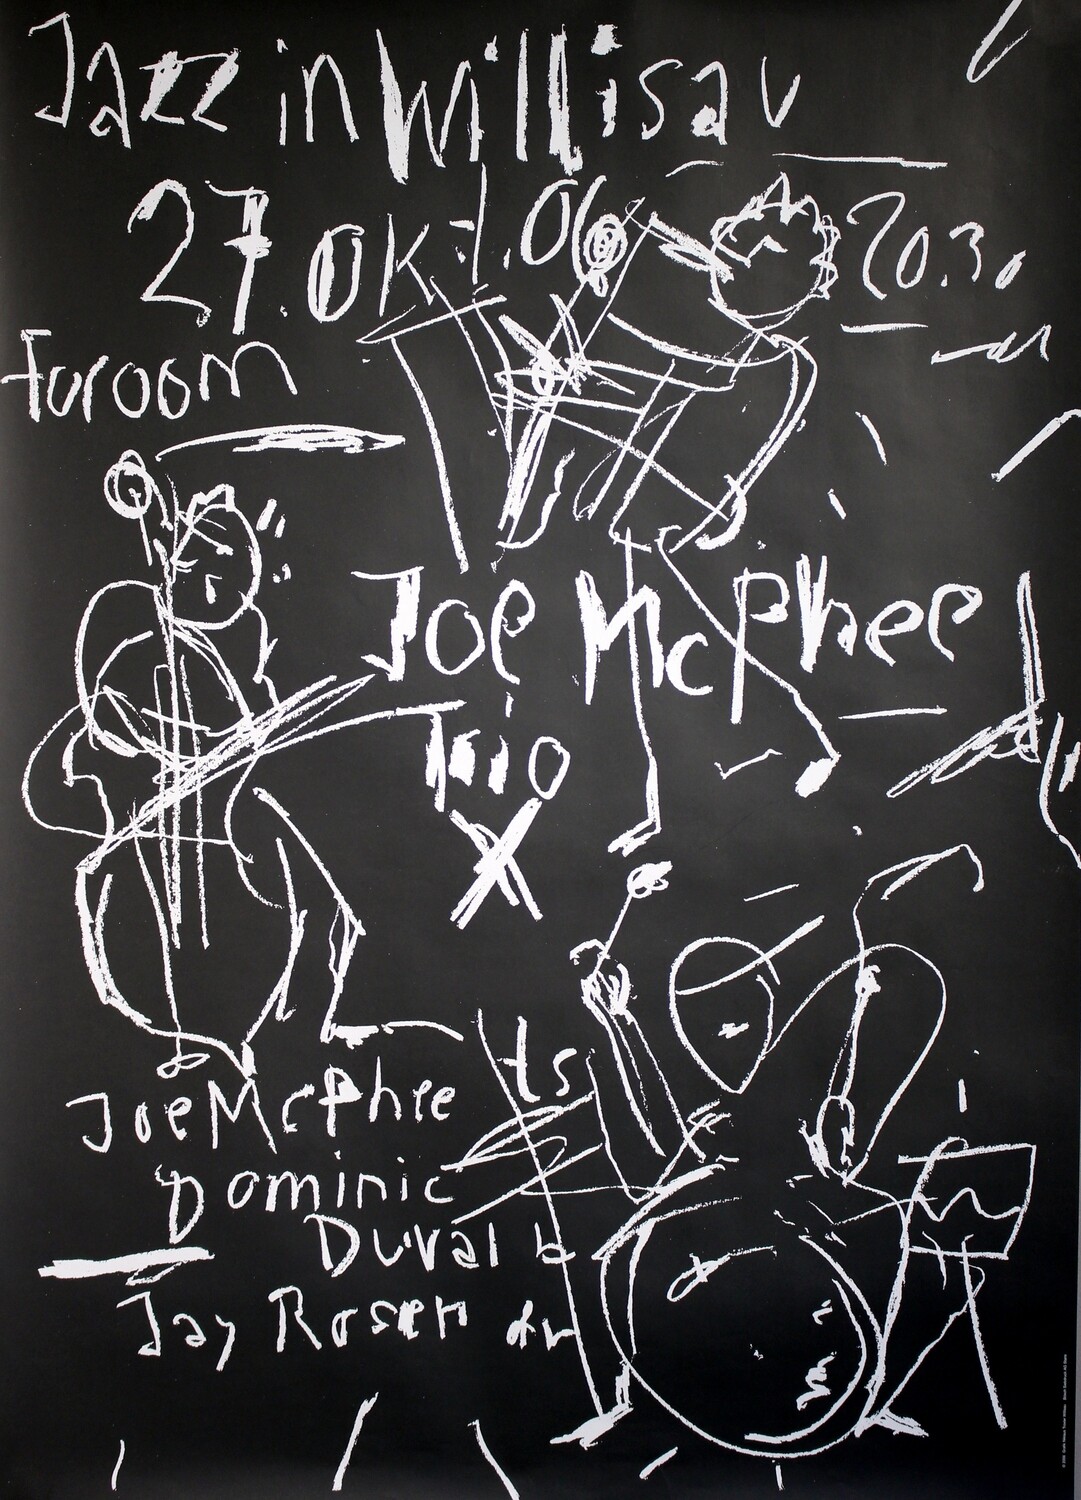 Jazz in Willisau
27. Okt. 06 20.30
Foroom
Joe McPhee
Trio X
Joe McPhee ts
Dominic
Duval b
Jay Rosen dr